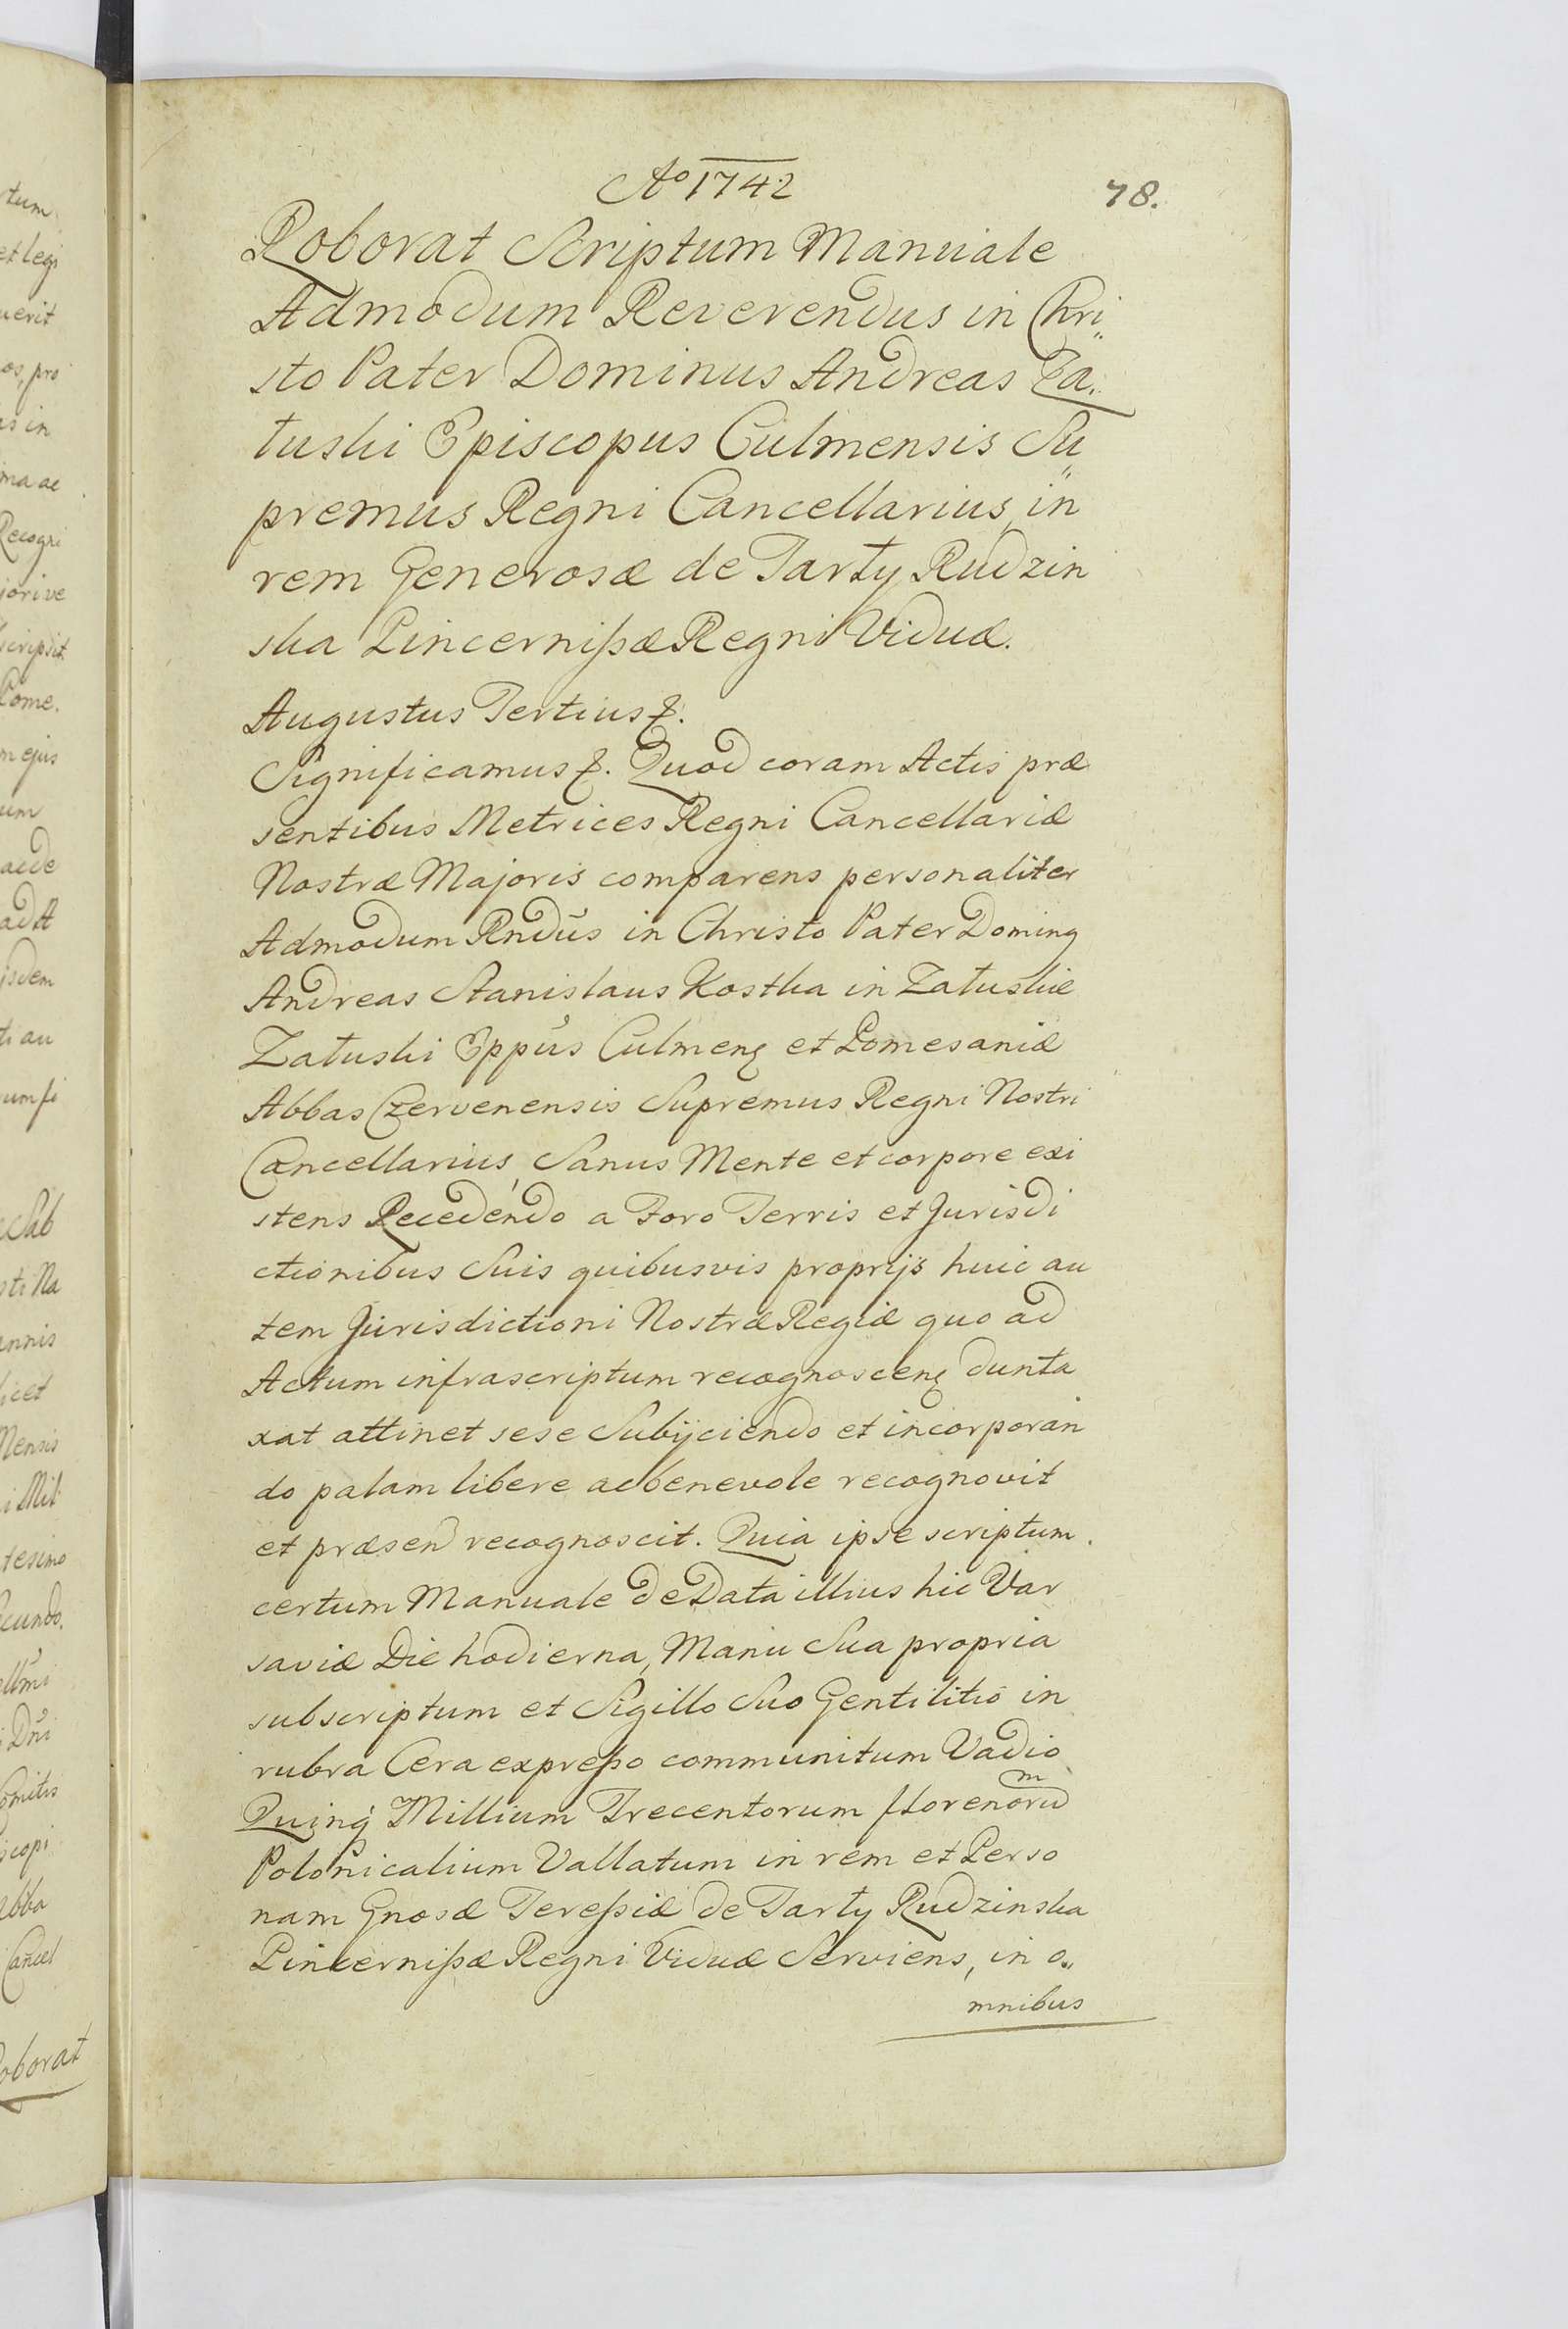 Aº 1742
78.
Roborat Scriptum Manuale
Admodum Reverendus in Chri„
sto Pater Dominus Andreas Za„
łuski Episcopus Culmensis Su„
premus Regni Cancellarius, in
rem Generosæ de Tarły Rudzin
ska Pincernißæ Regni Viduæ.
Augustus Tertius &.
Significamus &. Quod coram Actis præ
sentibus Metrices Regni Cancellariæ
Nostræ Majoris comparens personaliter
Admodum Rndūs in Christo Pater Doming
Andreas Stanislaus Kostka in Załuskie
Załuski Eppūs Culmens et Pomesaniæ
Abbas Czervenensis Supremus Regni Nostri
Cancellarius, Sanus Mente et corpore exi
stens Recedendo a Foro Terris et Jurisdi
ctionibus Suis quibusvis proprijs huic au
tem Jurisdictioni Nostræ Regiæ quo ad
Actum infrascriptum recognoscens dunta
xat attinet sese Subijciendo et incorporan
do palam libere ac benevole recognovit
et præsen recognoscit. Quia ipse scriptum
certum Manuale de Data illius hic Var
saviæ Die hodierna, Manu Sua propria
subscriptum et Sigillo Suo Gentilitio in
rubra Cera expreßo communitum Vadio
Quinq Millium Trecentorum florenorum
Polonicalium Vallatum in rem et Perso
nam Gnosæ Tereßiæ de Tarły Rudzinska
Pincernißæ Regni Viduæ Serviens, in o„
mnibus
tum
et legi
uerit
os, pro
as in
ma ac
Recogni
jorive
scripsit
Come.
m ejus
um
acde
ad A
isdem
ti au
umfi
Sub
sti Na
annis
licet
Mensis
i Mil
tesimo
cundo.
i Dni
omitis
scopi
abba
Cancel
Roborat